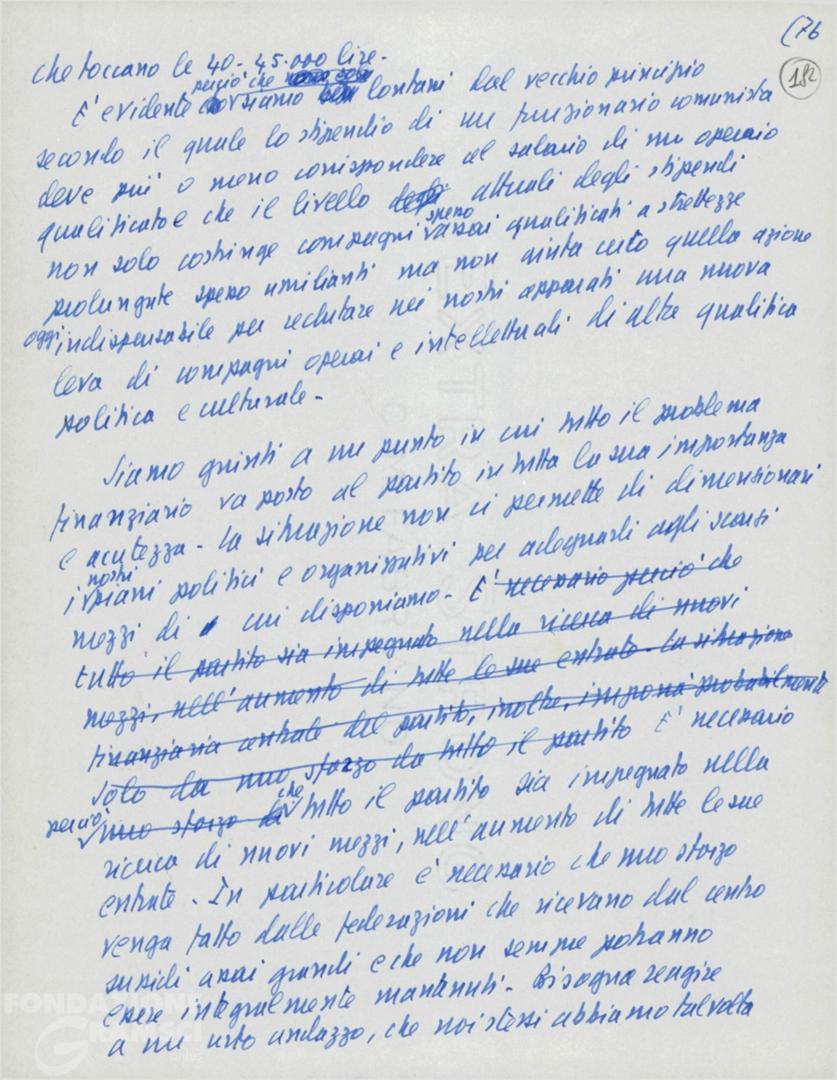 (76
182
che toccano le 40-45.000 lire.
E' evidente perciò che siamo lontani dal vecchio principio
secondo il quale lo stipendio di un funzionario comunista
deve più o meno corrispondere al salario di un operaio
qualificato e che il livello degli attuali degli stipendi
non solo costringe compagni spesso assai qualificati a strettezze
prolungate spesso umilianti ma non aiuta certo quella azione
oggi indispensabile per reclutare nei nostri apparati una nuova
leva di compagni operai e intellettuali di alta qualifica
politica e culturale.
Siamo quindi a un punto in cui tutto il problema
finanziario va posto al partito in tutta la sua importanza
e acutezza. La situazione non ci permette di dimensionare
i nostri piani politici e organizzativi per adeguarli agli scarsi
mezzi di cui disponiamo. E' necessario perciò che
tutto il partito sia impegnato nella ricerca di nuovi
mezzi, nell'aumento di tutte le sue entrate. La situazione
finanziaria centrale del partito, inoltre, impone probabilmente
solo da uno sforzo da tutto il partito E' necessario
perciò uno sforzo da che tutto il partito sia impegnato nella
ricerca di nuovi mezzi, nell'aumento di tutte le sue
entrate. In particolare è necessario che uno sforzo
venga fatto dalle federazioni che ricevano dal centro
sussidi assai grandi e che non sempre potranno
essere integralmente mantenuti. Bisogna reagire
a un certo andazzo, che noi stessi abbiamo talvolta
FONDAZIONE
GRAMSCI